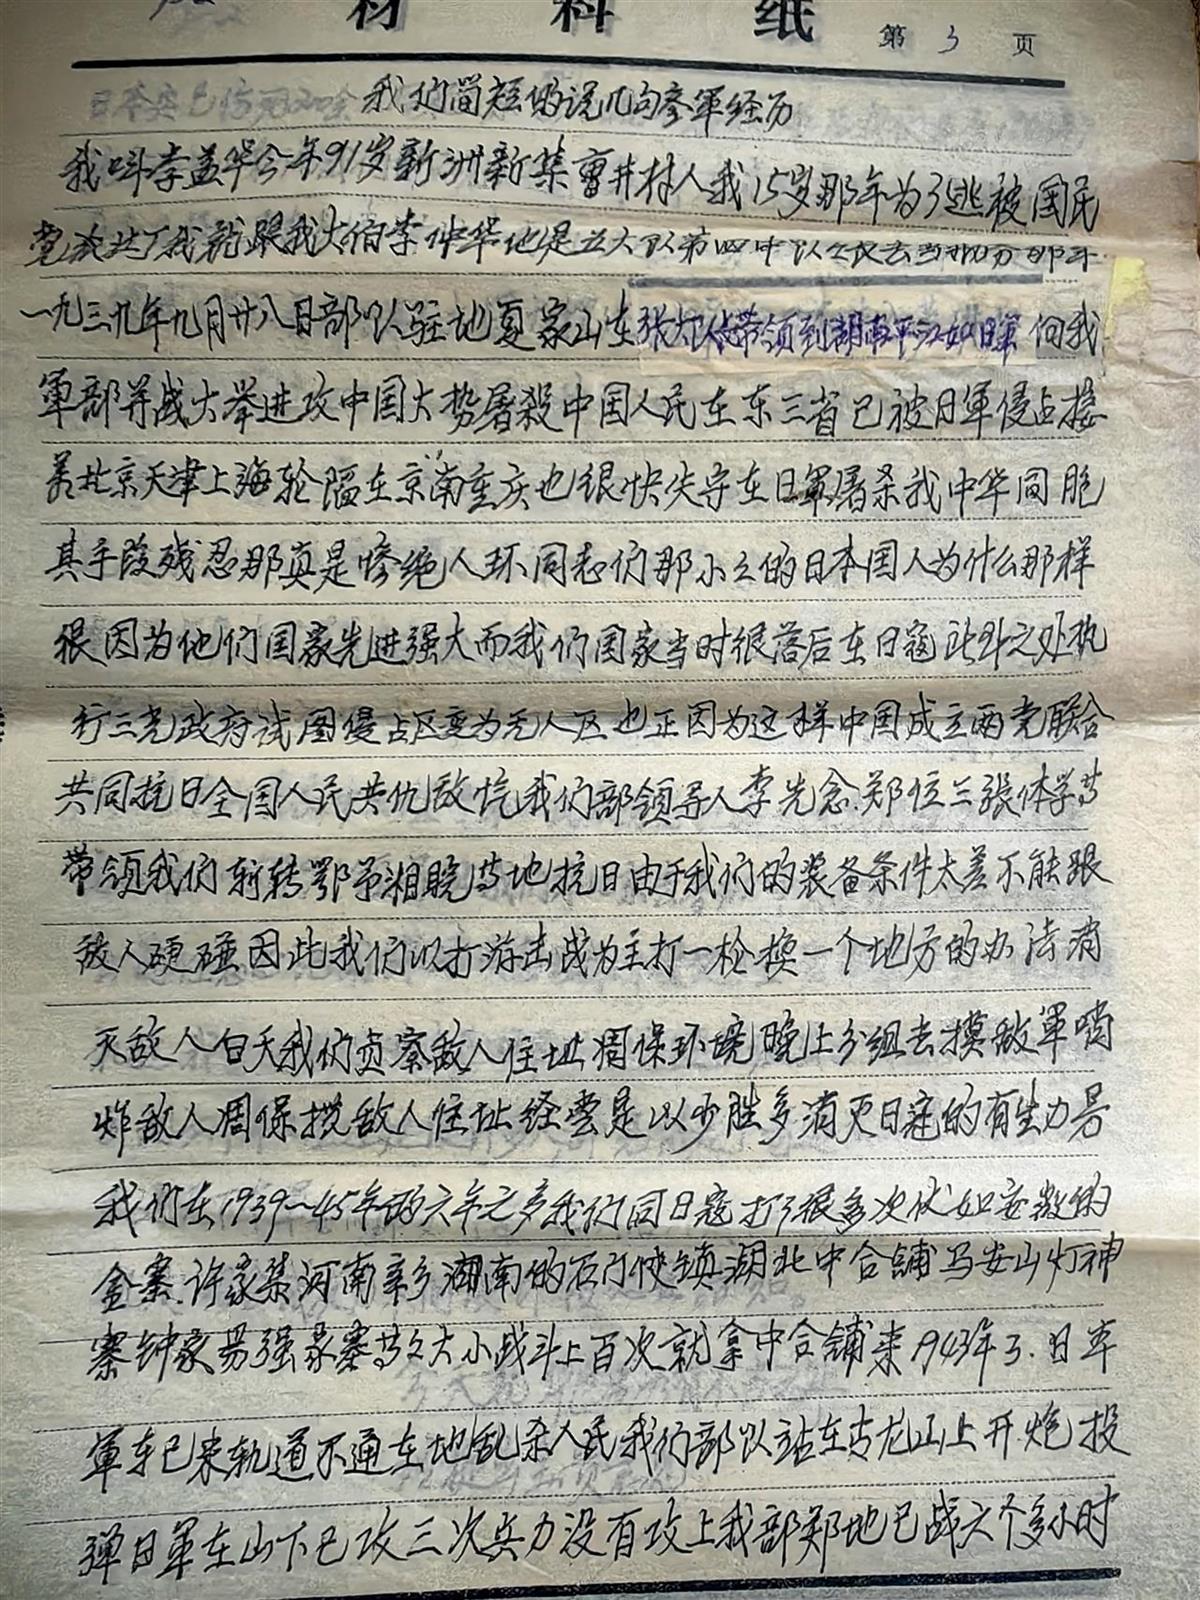 材料纸 第3页
我们简短的说几句参军经历
我叫李益华今年91岁新洲新集曹井村人我15岁那年为了逃被国民
党我就跟我大伯李仲华他是五大队第四中队
一九三九年九月廿八日部队驻地夏家山东张大队长带领到湖南平江如日军向我
军部并战大举进攻中国大势屠殺中国人民在东三省已被日军侵占接
着北京天津上海轮陷在京南重庆也很快失守在日軍屠杀我中华同胞
其手段残忍那真是惨绝人环同志们那小小的日本国人为什么那样
狠因为他们国家先进强大而我们国家当时很落后在日寇此外之处执
行三光政府试图侵占区变为无人区也正因为这样中国成立两党联合
共同抗日全国人民共仇敌忾我们部领导人李先念.郑位三張体学等
带领我们斩转鄂予湘皖等地抗日由于我们的装备条件太差不能跟
敌人硬碰因此我们以打游击战为主打一枪换一个地方的办法消
灭敌人白天我们贞察敌人住址凋保环境晚上分组去摸敌軍哨
炸敌人凋保搅敌人住址经尝是以少胜多消灭日寇的有生力另
我们在1939～45年的六年之多我们同日寇打了很多次仗如安徽的
金寨.许家集河南新乡湖南的石门侠镇湖北中合铺马安山灯神
寨钟家易强家寨等大小战斗上百次就拿中合铺来1943年3.日车
軍车已来轨道不通在地乱杀人民我们部队站在古龙山上开炮投
弹日軍在山下已攻三次兵力没有攻上我部郑地已战六个多小时